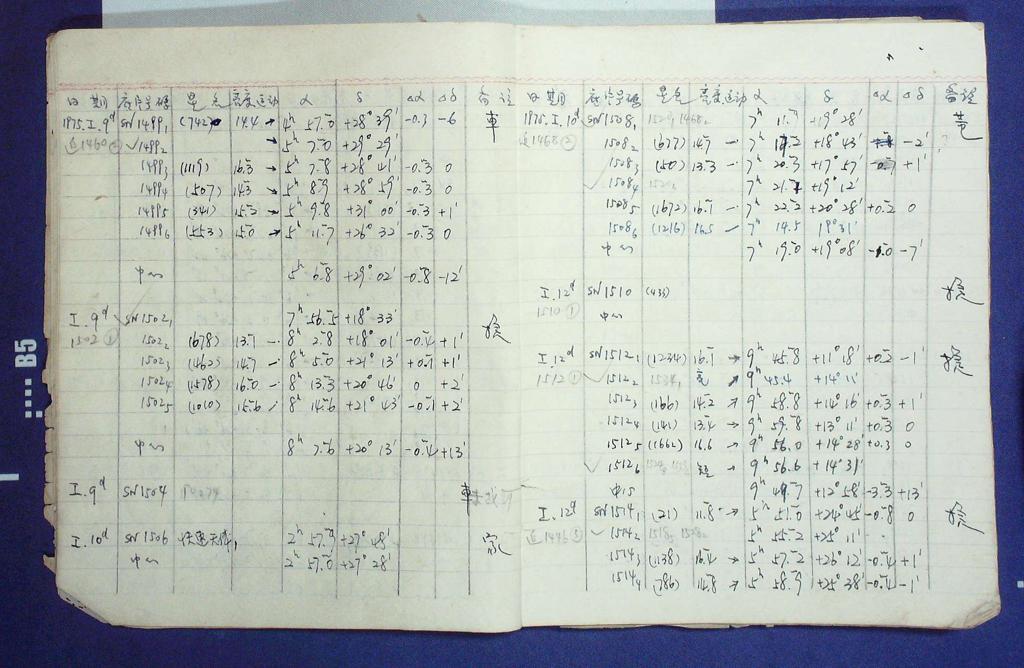 日期 底片号码 星名 亮度 运动 α δ Δα Δδ 备注
1975.I.9d SN1499₁ (742) 14.4 → 4h 57.0 +28° 39' -0.3 -6
1499₂ → 5h 7.0 +29° 29'
1499₃ (1119) 16.3 → 5h 7.8 +28° 41' -0.3 0
1499₄ (507) 14.3 → 5h 8.9 +28° 59' -0.3 0
1499₅ (341) 15.2 → 5h 9.8 +31° 00' -0.3 +1'
1499₆ (553) 15.0 → 5h 11.7 +26° 32' -0.3 0
中心 5h 6.8 +29° 02' -0.8 -12'
I.9d SN1502₁ 7h 56.5 +18° 33'
1502① 1502₂ (678) 13.1 8h 2.8 +18° 01' -0.4 +1'
1502₃ (462) 14.7 8h 5.0 +21° 13' +0.1 +1'
1502₄ (1578) 16.0 8h 13.3 +20° 46' 0 +2'
1502₅ (1010) 15.6 8h 14.6 +21° 43' -0.1 +2'
中心 8h 7.6 +20° 13' -0.4 +13'
I.9d SN1504
I.10d SN1506 快速天体, 2h 57.9 +27° 48'
中心 2h 57.0 +27° 28'
日期 底片号码 星名 亮度 运动 α δ Δα Δδ 备注
1975.I.10d SN1508₁ 7h 11.7 +19° 28'
1508₂ (677) 14.7 7h 19.2 +18° 43' -2'
1508₃ (50) 13.3 → 7h 20.3 +17° 57' +1'
1508₄ 7h 21.7 +19° 12'
1508₅ (1672) 16.1 7h 22.2 +20° 28' +0.2 0
1508₆ (1216) 16.5 7h 14.5 19° 31'
中心 7h 19.0 +19° 08' -1.0 -7'
I.12d SN1510 (433)
1510① 中心
I.12d SN1512₁ (1234) 16.1 → 9h 45.8 +11° 18' +0.2 -1'
1512① 1512₂ 亮 9h 45.4 +14° 11'
1512₃ (166) 14.2 9h 58.8 +14° 16' +0.3 +1'
1512₄ (141) 13.4 → 9h 59.8 +13° 11' +0.3 0
1512₅ (1662) 16.6 → 9h 56.0 +14° 28' +0.3 0
1512₆ 短 → 9h 56.6 +14° 31'
中心 9h 49.7 +12° 58' -3.3 +13'
I.12d SN1514₁ (21) 11.8 → 5h 51.0 +24° 45' -0.8 0
1514₂ 5h 55.2 +25° 11'
1514₃ (1138) 16.4 → 5h 57.2 +26° 12' -0.4 +1'
1514₄ (786) 14.8 → 5h 58.9 +25° 38' -0.4 -1'
B5